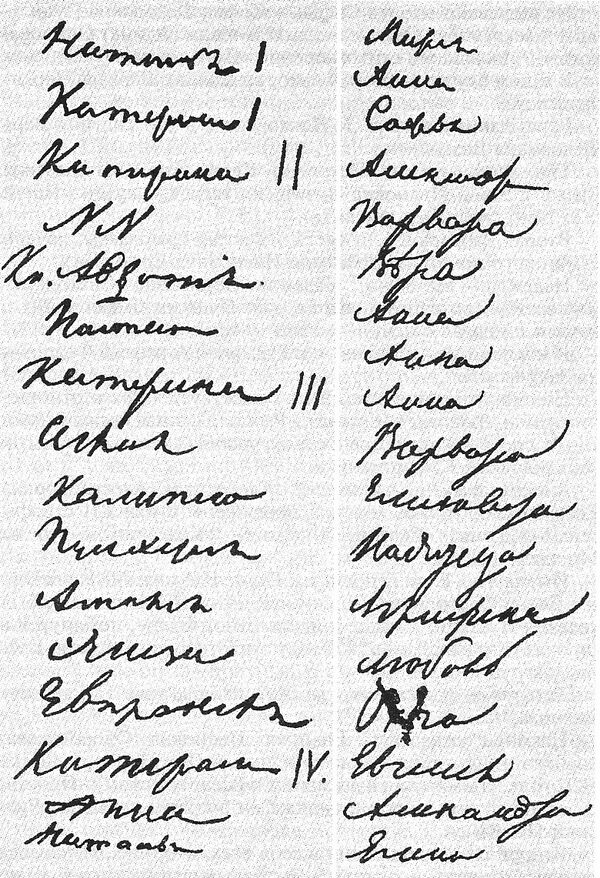 Наталья I
Катерина I
Катерина II
NN
Кн. Авдотья.
Настасья
Катерина III
Аглая
Калипсо
Пульхерия
Амалия
Элиза
Евпраксея
Катерина IV.
Анна
Наталья
Мария
Анна
Софья
Александра
Варвара
Вѣра
Анна
Анна
Анна
Варвара
Елизавета
Надежда
Аграфена
Любовь
Ольга
Евгения
Александра
Елена